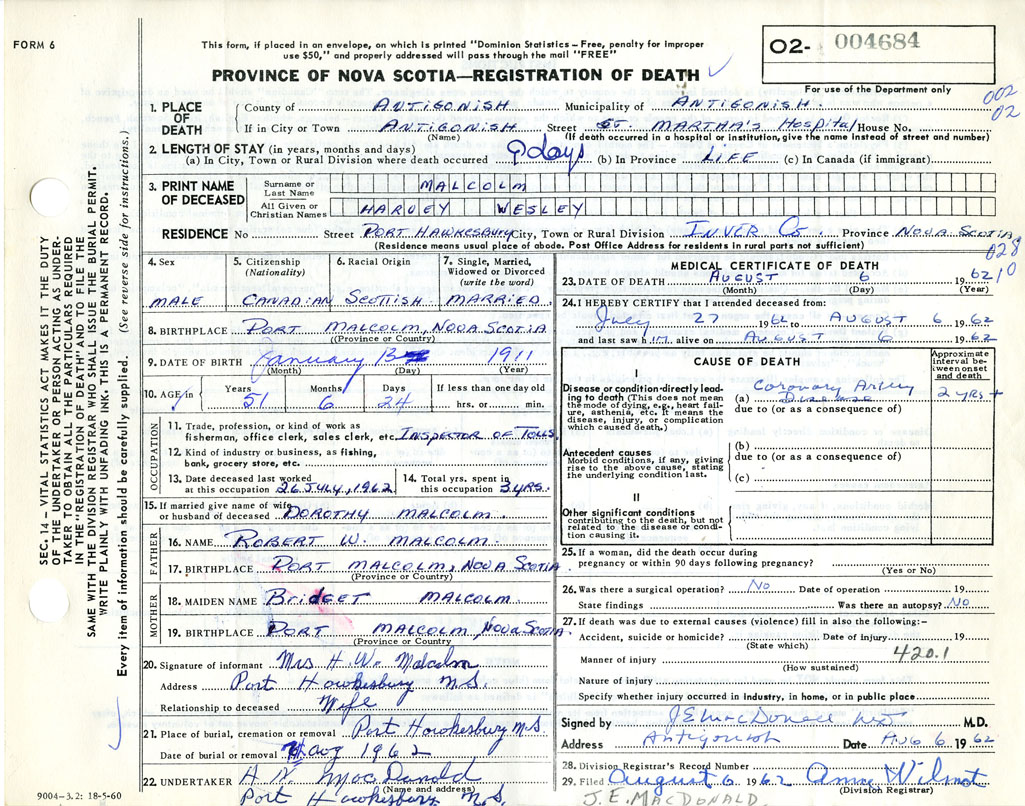 FORM 6
This form, if placed in an envelope, on which is printed "Dominion Statistics – Free, penalty for Improper
use $50," and properly addressed will pass through the mail "FREE"
PROVINCE OF NOVA SCOTIA—REGISTRATION OF DEATH ✓
O2- 004684
For use of the Department only
002
02
1. PLACE OF DEATH { County of ANTIGONISH Municipality of ANTIGONISH.
If in City or Town ANTIGONISH Street ST. MARTHA'S Hospital House No.
(Name) (If death occurred in hospital or institution, give the name instead of street and number)
2. LENGTH OF STAY (in years, months and days)
(a) In City, Town or Rural Division where death occurred 9 days (b) In Province LIFE (c) In Canada (if immigrant)
3. PRINT NAME OF DECEASED { Surname or Last Name MALCOLM
All Given or Christian Names HARVEY WESLEY
RESIDENCE No Street PORT HAWKESBURY City, Town or Rural Division INVER Co. Province NOVA SCOTIA
(Residence means usual place of abode. Post Office Address for residents in rural parts not sufficient)
028
10
4. Sex MALE
5. Citizenship (Nationality) CANADIAN
6. Racial Origin SCOTTISH
7. Single, Married, Widowed or Divorced (write the word) MARRIED
8. BIRTHPLACE PORT MALCOLM, NOVA SCOTIA
(Province or Country)
9. DATE OF BIRTH January 13 1911
(Month) (Day) (Year)
10. AGE in Years 51 Months 6 Days 24 If less than one day old hrs. or min.
OCCUPATION
11. Trade, profession, or kind of work as
fisherman, office clerk, sales clerk, etc. INSPECTOR OF TOLLS
12. Kind of industry or business, as fishing,
bank, grocery store, etc.
13. Date deceased last worked
at this occupation 26 JULY, 1962
14. Total yrs. spent in
this occupation 3 YRS.
15. If married give name of wife
or husband of deceased DOROTHY MALCOLM.
FATHER
16. NAME ROBERT W. MALCOLM.
17. BIRTHPLACE PORT MALCOLM, NOVA SCOTIA
(Province or Country)
MOTHER
18. MAIDEN NAME BRIDGET MALCOLM
19. BIRTHPLACE PORT MALCOLM, NOVA SCOTIA.
(Province or Country)
20. Signature of informant Mrs H. W. Malcolm
Address Port Hawkesbury N.S.
Relationship to deceased Wife
21. Place of burial, cremation or removal Port Hawkesbury N.S.
Date of burial or removal Aug 1962
22. UNDERTAKER A N. MacDonald
(Name and address)
Port Hawkesbury N.S.
MEDICAL CERTIFICATE OF DEATH
23. DATE OF DEATH AUGUST 6 1962
(Month) (Day) (Year)
24. I HEREBY CERTIFY that I attended deceased from:
July 27 1962 to AUGUST 6 1962
and last saw him alive on AUGUST 6 1962
CAUSE OF DEATH
Approximate interval between onset and death
I
Disease or condition directly leading to death (This does not mean
the mode of dying, e.g., heart failure, asthenia, etc. It means the
disease, injury, or complication which caused death.)
(a) Coronary Artery Disease 2 yrs +
due to (or as a consequence of)
Antecedent causes
Morbid conditions, if any, giving
rise to the above cause, stating
the underlying condition last.
(b)
due to (or as a consequence of)
(c)
II
Other significant conditions
contributing to the death, but not
related to the disease or condition
causing it.
25. If a woman, did the death occur during
pregnancy or within 90 days following pregnancy?
(Yes or No)
26. Was there a surgical operation? No Date of operation 19
State findings Was there an autopsy? No
27. If death was due to external causes (violence) fill in also the following:–
Accident, suicide or homicide? Date of injury 19
(State which)
420.1
Manner of injury
(How sustained)
Nature of injury
Specify whether injury occurred in industry, in home, or in public place
Signed by J E MacDonald MD M.D.
Address Antigonish Date AUG 6 1962
28. Division Registrar's Record Number
29. Filed August 6 1962 Anne Wilmot
(Division Registrar)
J. E. MACDONALD
SEC. 14 – VITAL STATISTICS ACT MAKES IT THE DUTY
OF THE UNDERTAKER OR PERSON ACTING AS UNDERTAKER
TO OBTAIN ALL THE PARTICULARS REQUIRED
IN THE "REGISTRATION OF DEATH" AND TO FILE THE
SAME WITH THE DIVISION REGISTRAR WHO SHALL ISSUE THE BURIAL PERMIT.
WRITE PLAINLY WITH UNFADING INK. THIS IS A PERMANENT RECORD.
Every item of information should be carefully supplied. (See reverse side for instructions.)
9004-3.2: 18-5-60